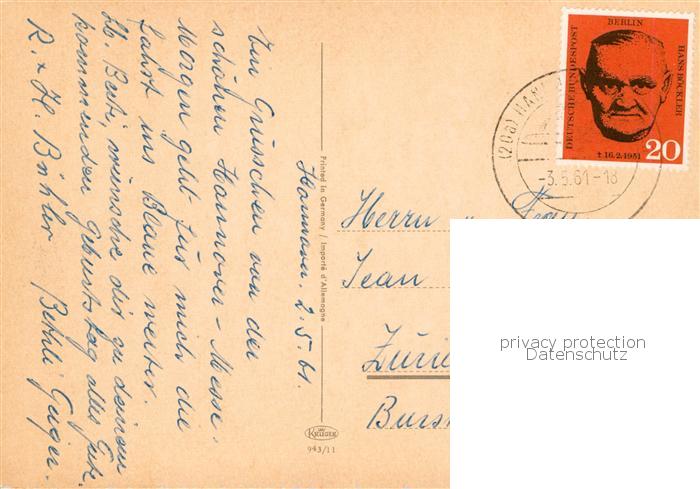 Hannover. 2.5.61.
Ein Grüsschen von der
schönen Hannover-Messe.
Morgen geht für mich die
Fahrt ins Blaue weiter.
Lb. Berti, wünsche dir zu deinem
kommenden Geburtstag alles Gute.
R. + H. Bühler Bethli
Printed in Germany / Importé d'Allemagne
KRÜGER
943/11
BERLIN
DEUTSCHE BUNDESPOST
HANS BÖCKLER
† 16.2.1951
20
(20a) HAN
-3.5.61-18
Herrn u. Frau
Jean
Züri
Burs
privacy protection
Datenschutz